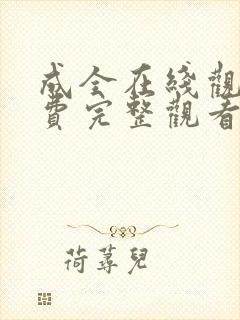 成全在线觀
費完整觀看
荷蕁兒